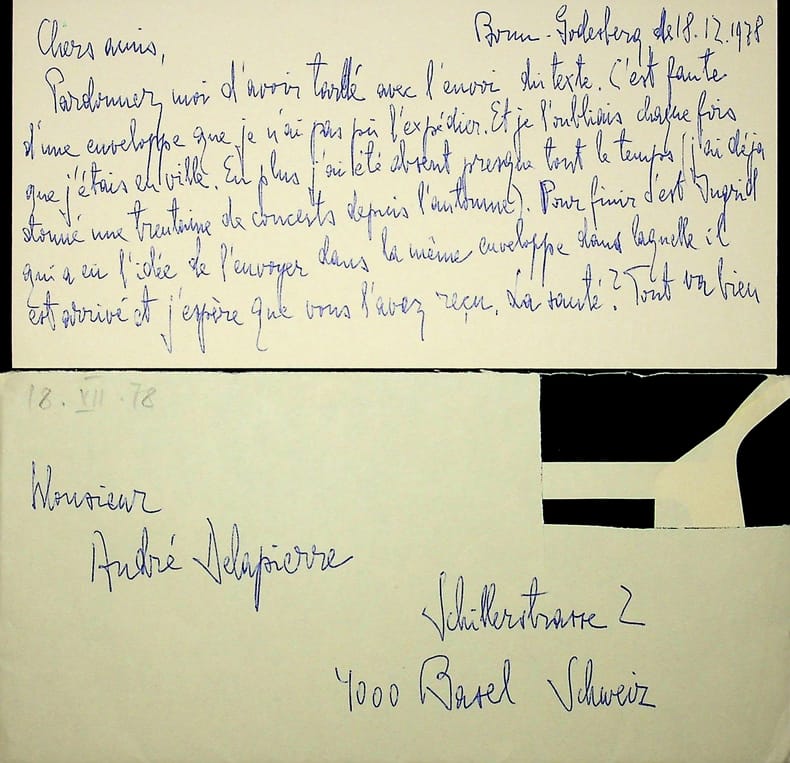 Bonn-Godesberg de 18.12.1978
Chers amis,
Pardonnez moi d'avoir tardé avec l'envoi du texte. C'est faute
d'une enveloppe que je n'ai pas pû l'expédier. Et je l'oubliais chaque fois
que j'étais en ville. En plus j'ai été absent presque tout le temps (j'ai déja
donné une trentaine de concerts depuis l'automne). Pour finir c'est Ingrid
qui a eu l'idée de l'envoyer dans la même enveloppe dans laquelle il
est arrivé et j'espère que vous l'avez reçu. La santé? Tout va bien
18.XII.78
Monsieur
André Delapierre
Schillerstrasse 2
4000 Basel Schweiz